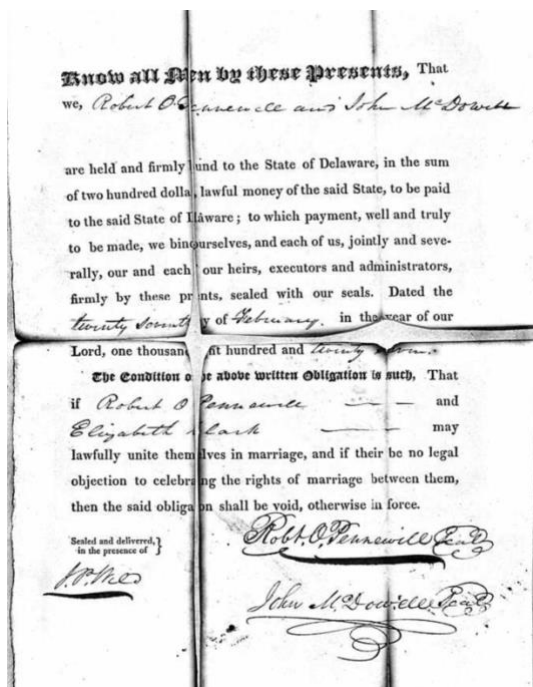 Know all Men by these Presents, That
we, Robert O Pennewill and John McDowell
are held and firmly und to the State of Delaware, in the sum
of two hundred dolla, lawful money of the said State, to be paid
to the said State of Dlaware; to which payment, well and truly
to be made, we bin ourselves, and each of us, jointly and seve-
rally, our and each our heirs, executors and administrators,
firmly by these prnts, sealed with our seals. Dated the
twenty sevent y of February. in the year of our
Lord, one thousan ht hundred and twenty seven.
The Condition o e above written Obligation is such, That
if Robert O Pennewill and
Elizabeth Clark may
lawfully unite themlves in marriage, and if their be no legal
objection to celebrang the rights of marriage between them,
then the said obligaon shall be void, otherwise in force.
Sealed and delivered,
in the presence of }
Robt. O. Pennewill Seal
John McDowell Seal